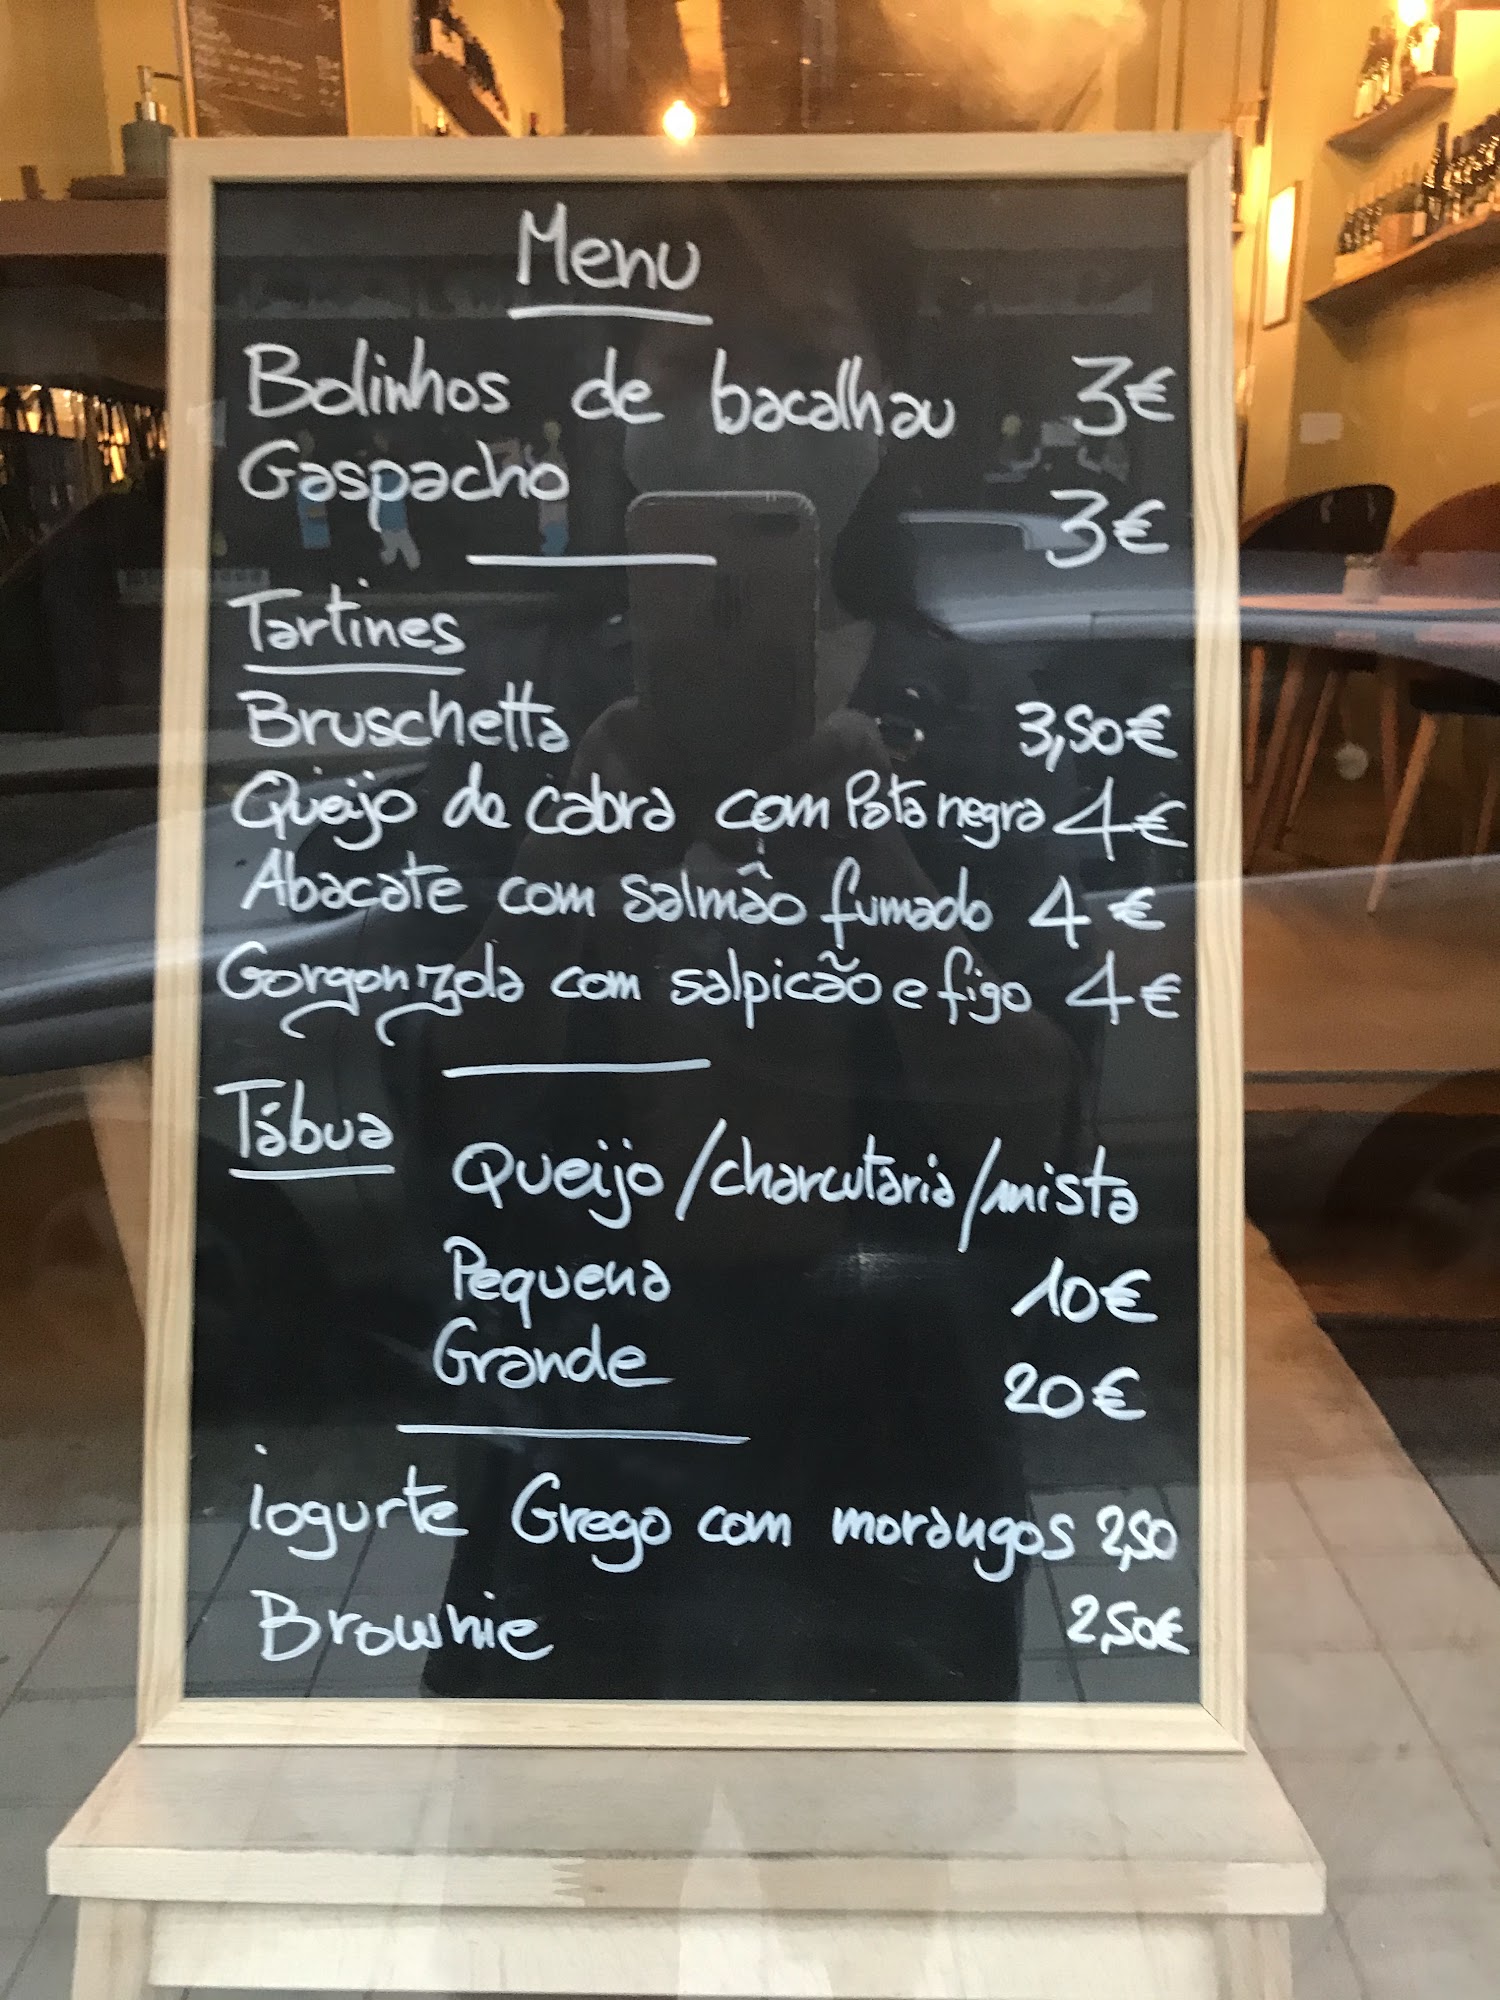 Menu
Bolinhos de bacalhau 3€
Gaspacho 3€
Tartines
Bruschetta 3,50€
Queijo de cabra com Pata negra 4€
Abacate com salmão fumado 4€
Gorgonzola com salpicão e figo 4€
Tábua
Queijo/charcutaria/mista
Pequena 10€
Grande 20€
iogurte Grego com morangos 2,50
Brownie 2,50€